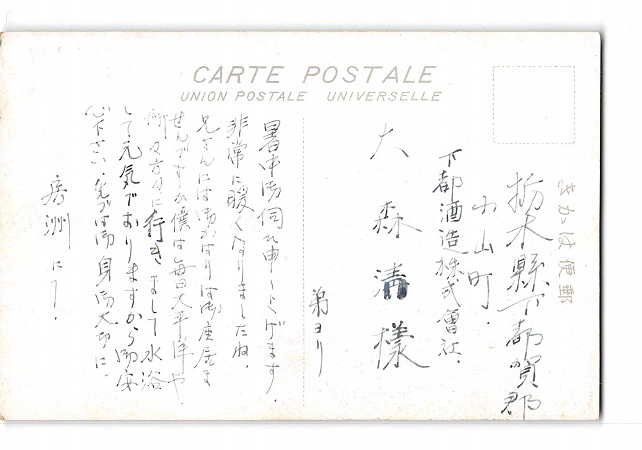 CARTE POSTALE
UNION POSTALE UNIVERSELLE
きかは便郵
栃木縣下都賀郡
小山町.
下都酒造株式會社.
大森清樣
弟ヨリ
暑中御伺ひ申し上げます.
非常に暖くなりましたね.
兄さんには御かはりは御座居ま
せんですか僕は毎日太平洋や
所々方々に行きまして水浴
して元気でおりますから御安
心下さい.先づは御身御大切に.
房洲にて.